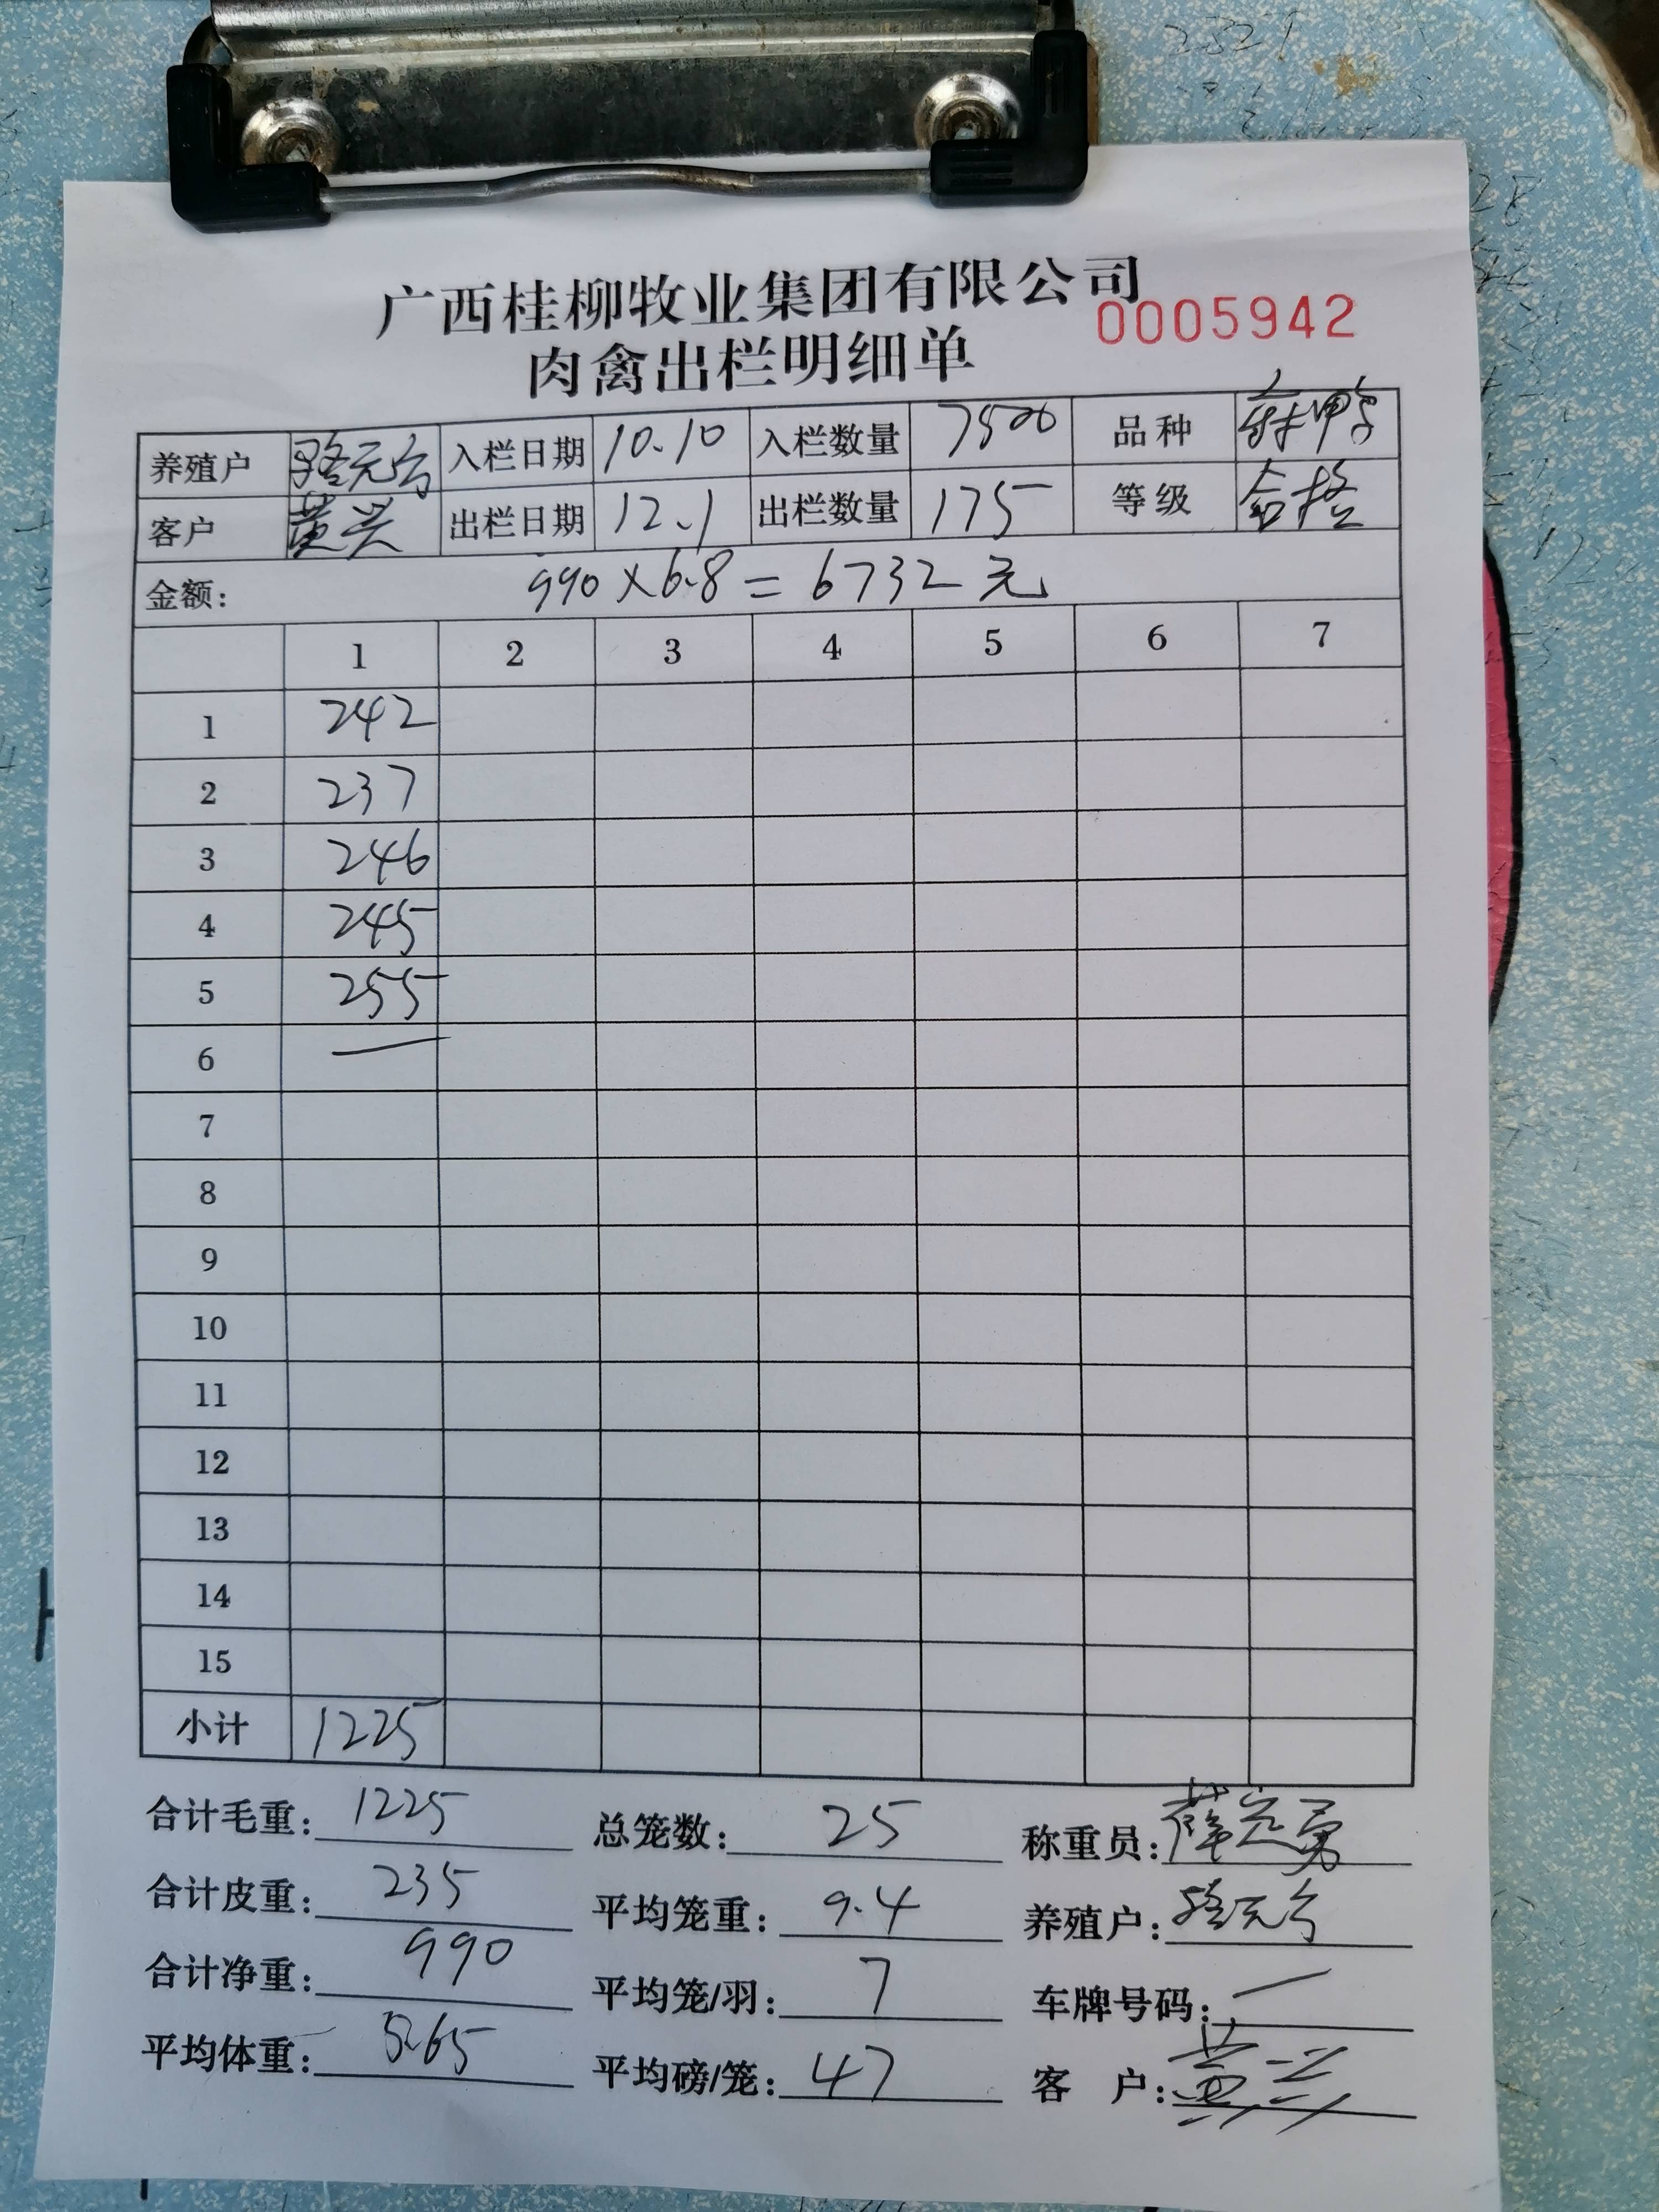 广西桂柳牧业集团有限公司
0005942
肉禽出栏明细单
养殖户 骆元台 入栏日期 10.10 入栏数量 7500 品种
客户 黄兴 出栏日期 12.1 出栏数量 175 等级 合格
金额: 990×6.8=6732元
1 2 3 4 5 6 7
1 242
2 237
3 246
4 245
5 255
6 —
7
8
9
10
11
12
13
14
15
小计 1225
合计毛重: 1225 总笼数: 25 称重员: 薛定勇
合计皮重: 235 平均笼重: 9.4 养殖户:
合计净重: 990 平均笼/羽: 7 车牌号码: —
平均体重: 5.65 平均磅/笼: 47 客 户: 黄兴